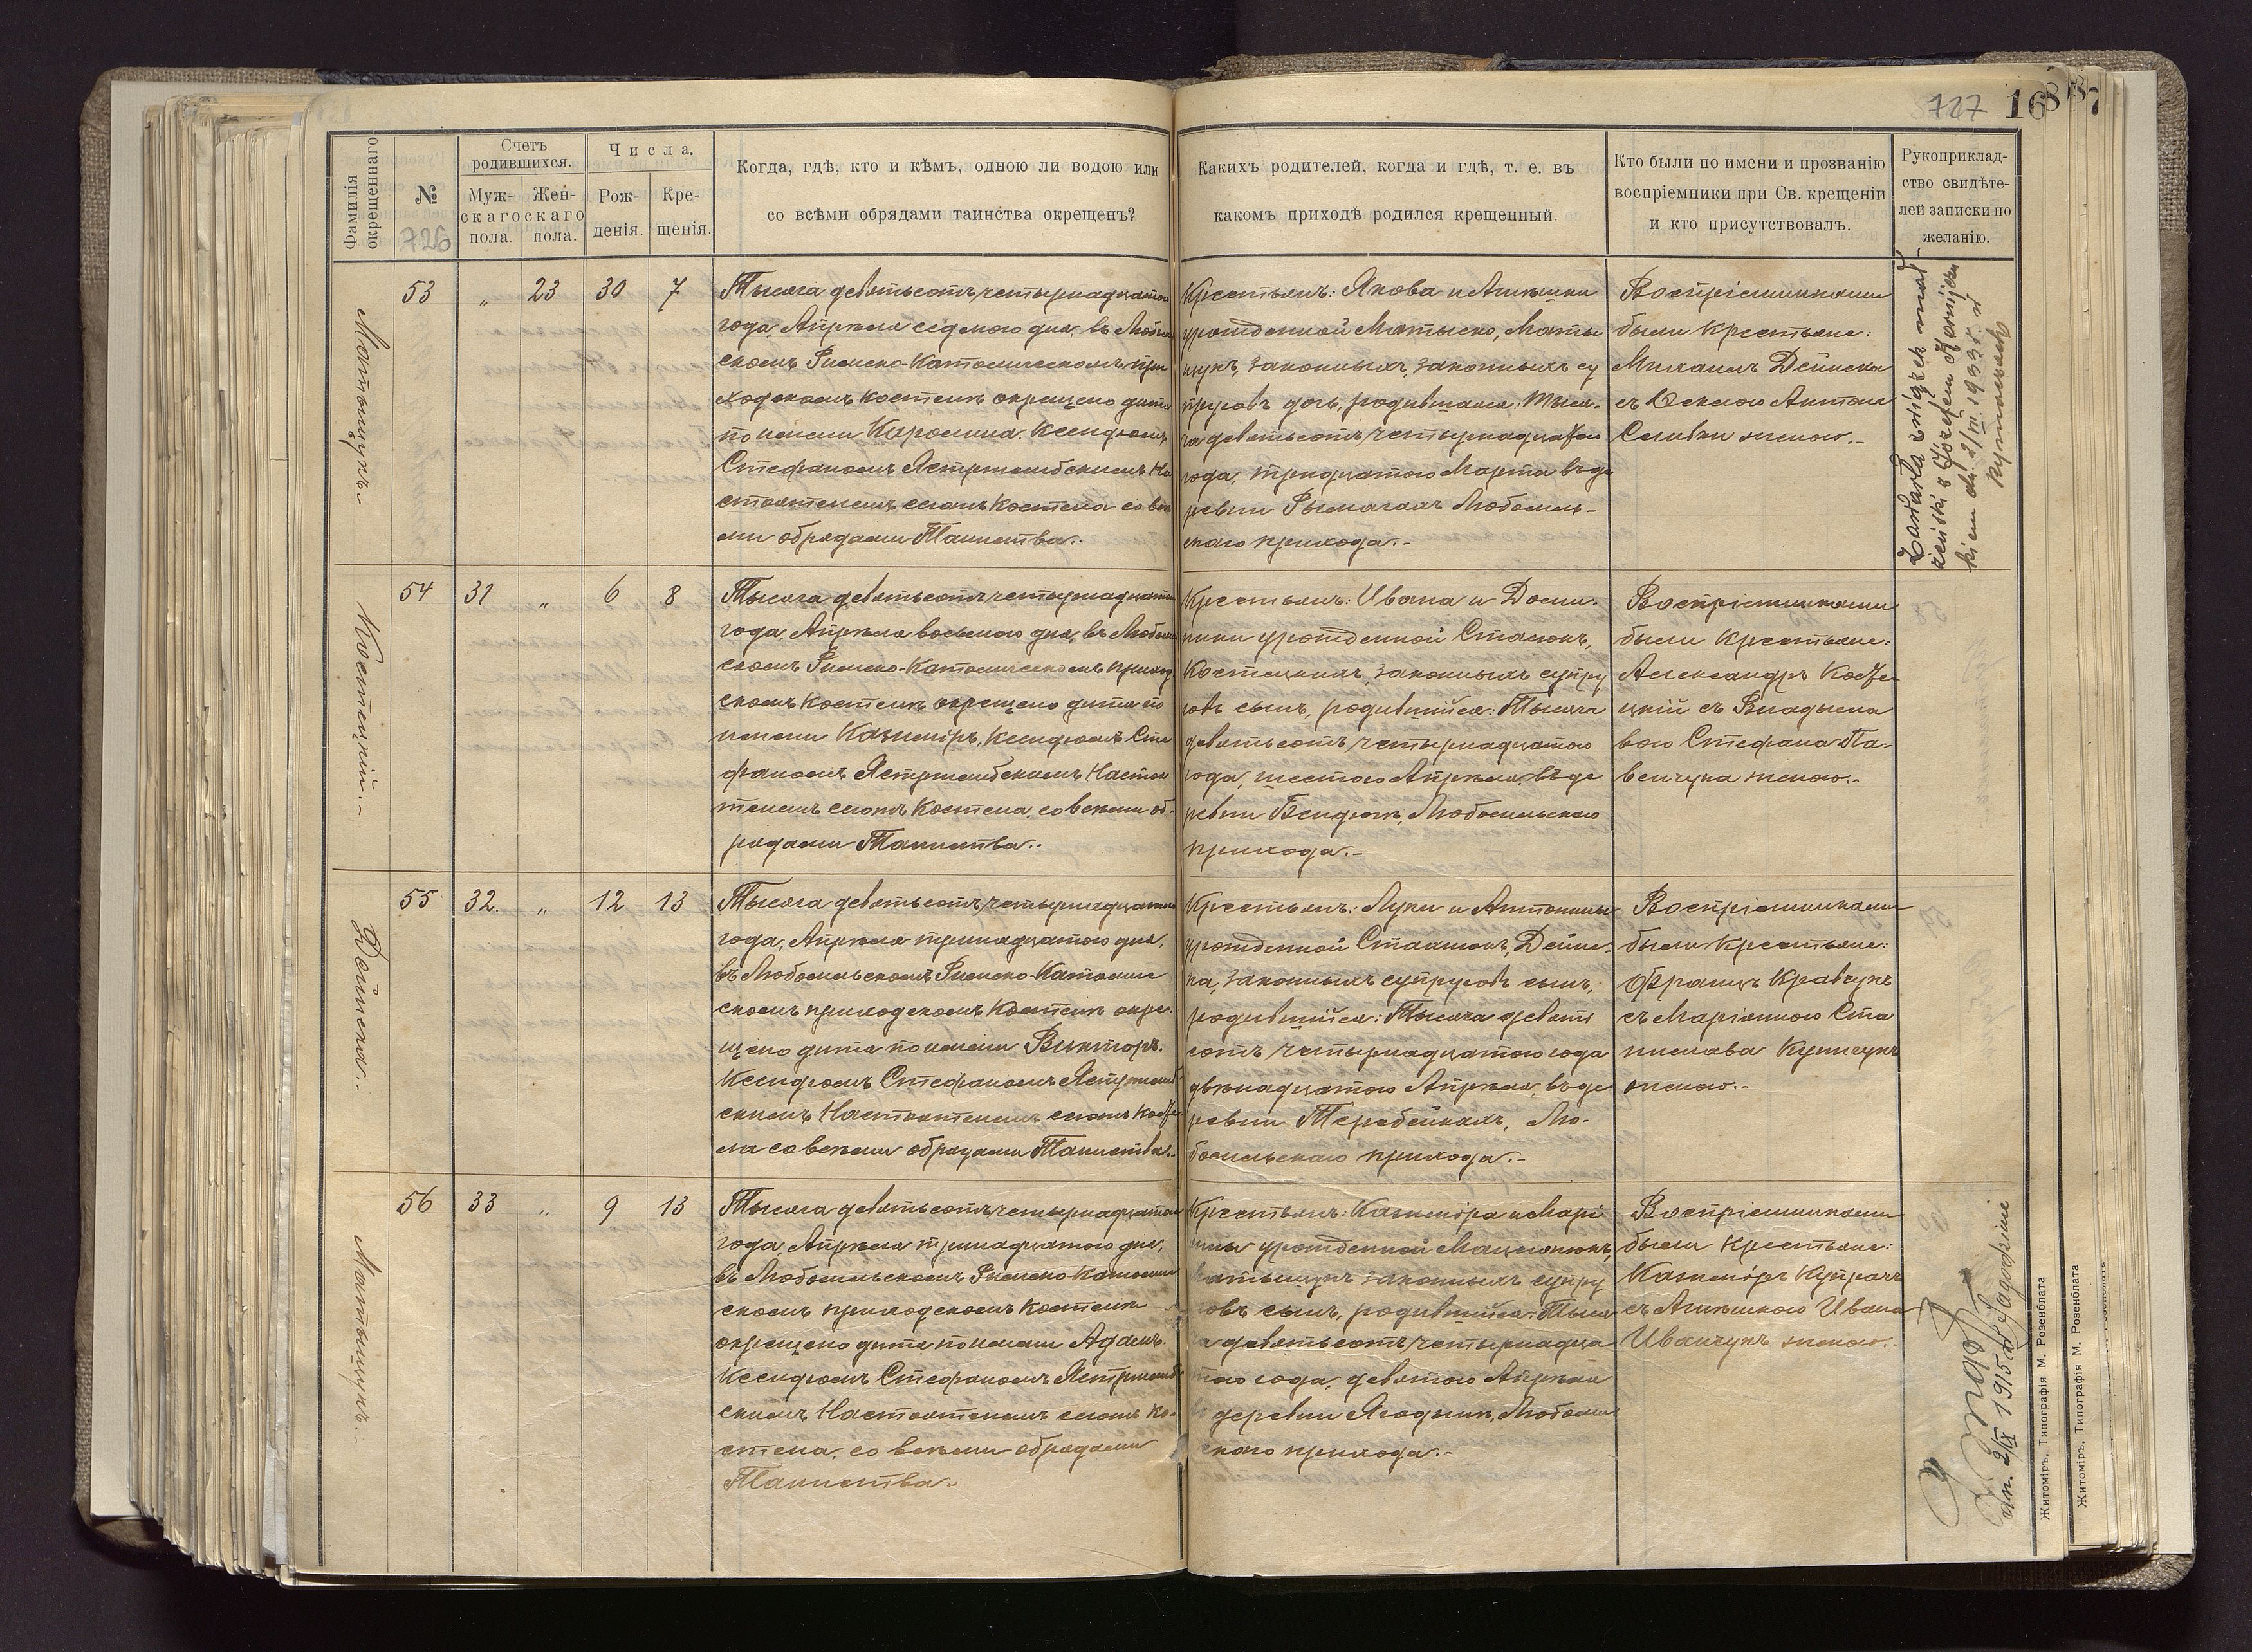 727 168
Фамилія окрещеннаго
№
726
Счетъ родившихся.
Муж-
скаго
пола.
Жен-
скаго
пола.
Числа.
Рож-
денія.
Кре-
щенія.
Когда, гдѣ, кто и кѣмъ, одною ли водою или
со всѣми обрядами таинства окрещенъ?
Какихъ родителей, когда и гдѣ, т. е. въ
какомъ приходѣ родился крещенный.
Кто были по имени и прозванію
воспріемники при Св. крещеніи
и кто присутствовалъ.
Рукоприклад-
ство свидѣте-
лей записки по
желанію.
Матыщукъ.-
53 „ 23 30 7
Тысяча девятьсотъ четырнадцатаго
года, Апрѣля седьмого дня, въ Любомль
скомъ Римско-Католическомъ при
ходскомъ костелѣ окрещено дитя
по имени Каролина. Ксендзомъ
Стефаномъ Ястржембскимъ На
стоятелемъ сего костела со всѣ
ми обрядами Таинства.-
Крестьянъ: Якова и Агнѣшки
урожденной Матыско, Маты
щукъ, законныхъ, законныхъ су
пруговъ дочь, родившаяся: Тыся-
ча девятьсотъ четырнадцатаго
года, тридцатаго Марта въ де
ревни Рымачахъ Любомль-
скаго прихода.-
Воспріемниками
были крестьяне:
Михаилъ Дейнека
съ Феклою Антона
Сливки женою.-
Zawarła związek mał-
żeński z Józefem
kiem dn. 1935 r. w
Rymaczach
Костецкій.-
54 31 „ 6 8
Тысяча девятьсотъ четырнадцатаго
года, Апрѣля восьмого дня, въ Любомль
скомъ Римско-Католическомъ приход
скомъ костелѣ окрещено дитя по
имени Казиміръ, Ксендзомъ Сте
фаномъ Ястржембскимъ Настоя
телемъ сего костела, со всѣми об-
рядами Таинства.-
Крестьянъ: Ивана и Доми-
ники урожденной Стасюкъ,
Костецкихъ, законныхъ супру
говъ сынъ, родившійся: Тысяча
девятьсотъ четырнадцатаго
года, шестого Апрѣля, въ де
ревни Бендюгѣ, Любомльскаго
прихода.-
Воспріемниками
были крестьяне:
Александръ Косте
цкій съ Владысла
вою Стефана Па-
венчука женою.-
Дейнека.-
55 32. „ 12 13
Тысяча девятьсотъ четырнадцатаго
года, Апрѣля тринадцатаго дня,
въ Любомльскомъ Римско-Католиче
скомъ приходскомъ костелѣ окре-
щено дитя по имени Викторъ.
Ксендзомъ Стефаномъ Ястржемб
скимъ Настоятелемъ сего косте
ла со всѣми обрядами Таинства.-
Крестьянъ: Луки и Антонины
урожденной Сташюкъ, Дейне-
ка, законныхъ супруговъ сынъ,
родившійся: Тысяча девять
сотъ четырнадцатаго года
двѣнадцатаго Апрѣля, въ де
ревни Теребейкахъ, Лю-
бомльскаго прихода.-
Воспріемниками
были крестьяне:
Францъ Кравчукъ
съ Маріанною Ста
нислава Купчукъ
женою.-
Матыщукъ.-
56 33 „ 9 13
Тысяча девятьсотъ четырнадцатаго
года, Апрѣля тринадцатаго дня,
въ Любомльскомъ Римско-Католиче
скомъ приходскомъ костелѣ
окрещено дитя по имени Адамъ.
Ксендзомъ Стефаномъ Ястржемб
скимъ Настоятелемъ сего ко-
стела, со всѣми обрядами
Таинства.-
Крестьянъ: Казиміра и Марі
анны урожденной
Матыщукъ законныхъ супру
говъ сынъ, родившійся: Тыся
ча девятьсотъ четырнадца
таго года, девятаго Апрѣля
въ деревни Ягодынѣ, Любомль
скаго прихода.-
Воспріемниками
были крестьяне:
Казиміръ Купрачъ
съ Агнѣшкою Ивана
Иванчукъ женою.-
Zmarł
dn. 2/IX 1915 w Jagodzinie
Житоміръ, Типографія М. Розенблата
Житоміръ, Типографія М. Розенблата